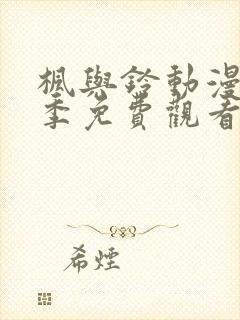 楓與鈴動漫
季免費觀看
希煙